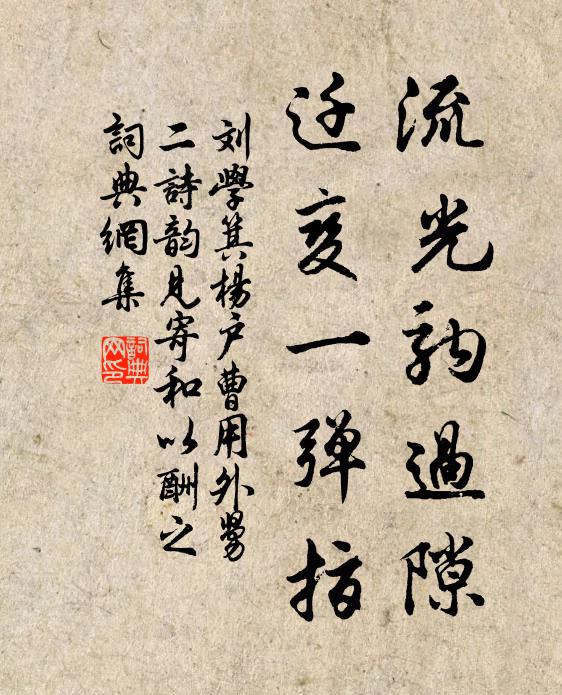 流光駒過隙
迁变一弹指
刘學箕楊户曹用外舅
二詩韵見寄和以酬之
詞典網集
詞典网印